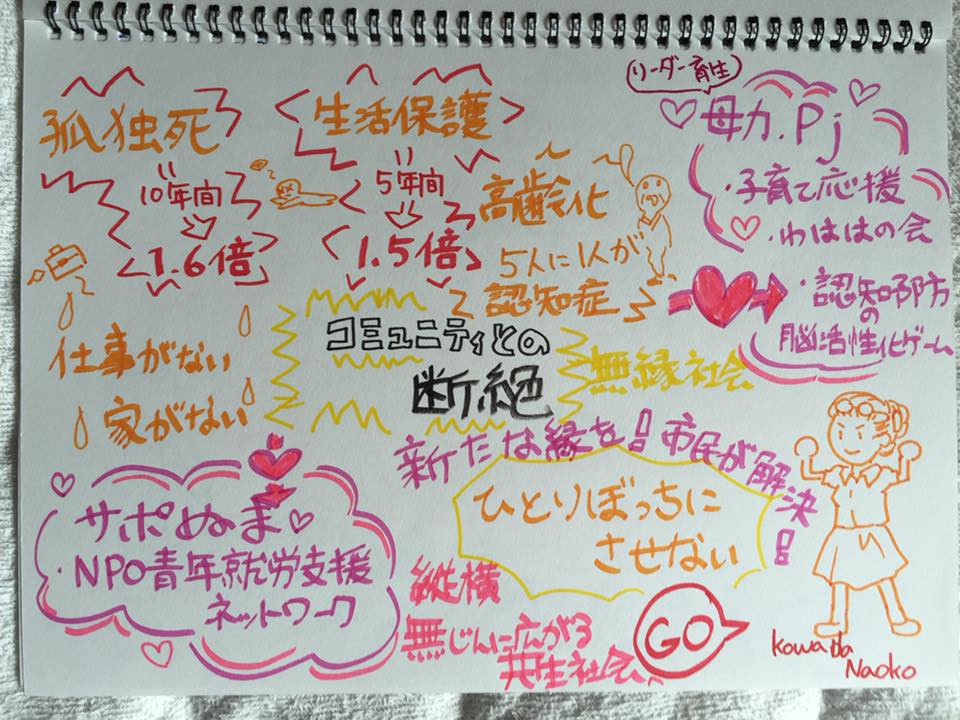 孤独死
10年間
1.6倍
生活保護
5年間
1.5倍
高齢化
5人に1人が
認知症
リーダー育生
母力.Pj
・子育て応援
・わははの会
・認知予防
の
脳活性化ゲーム
仕事がない
家がない
コミュニティとの
断絶
無縁社会
新たな縁を!市民が解決!
ひとりぼっちに
させない
サポぬま
・NPO青年就労支援
ネットワーク
縦横
無じんに広がる
共生社会へ
GO
Kowada
Naoko